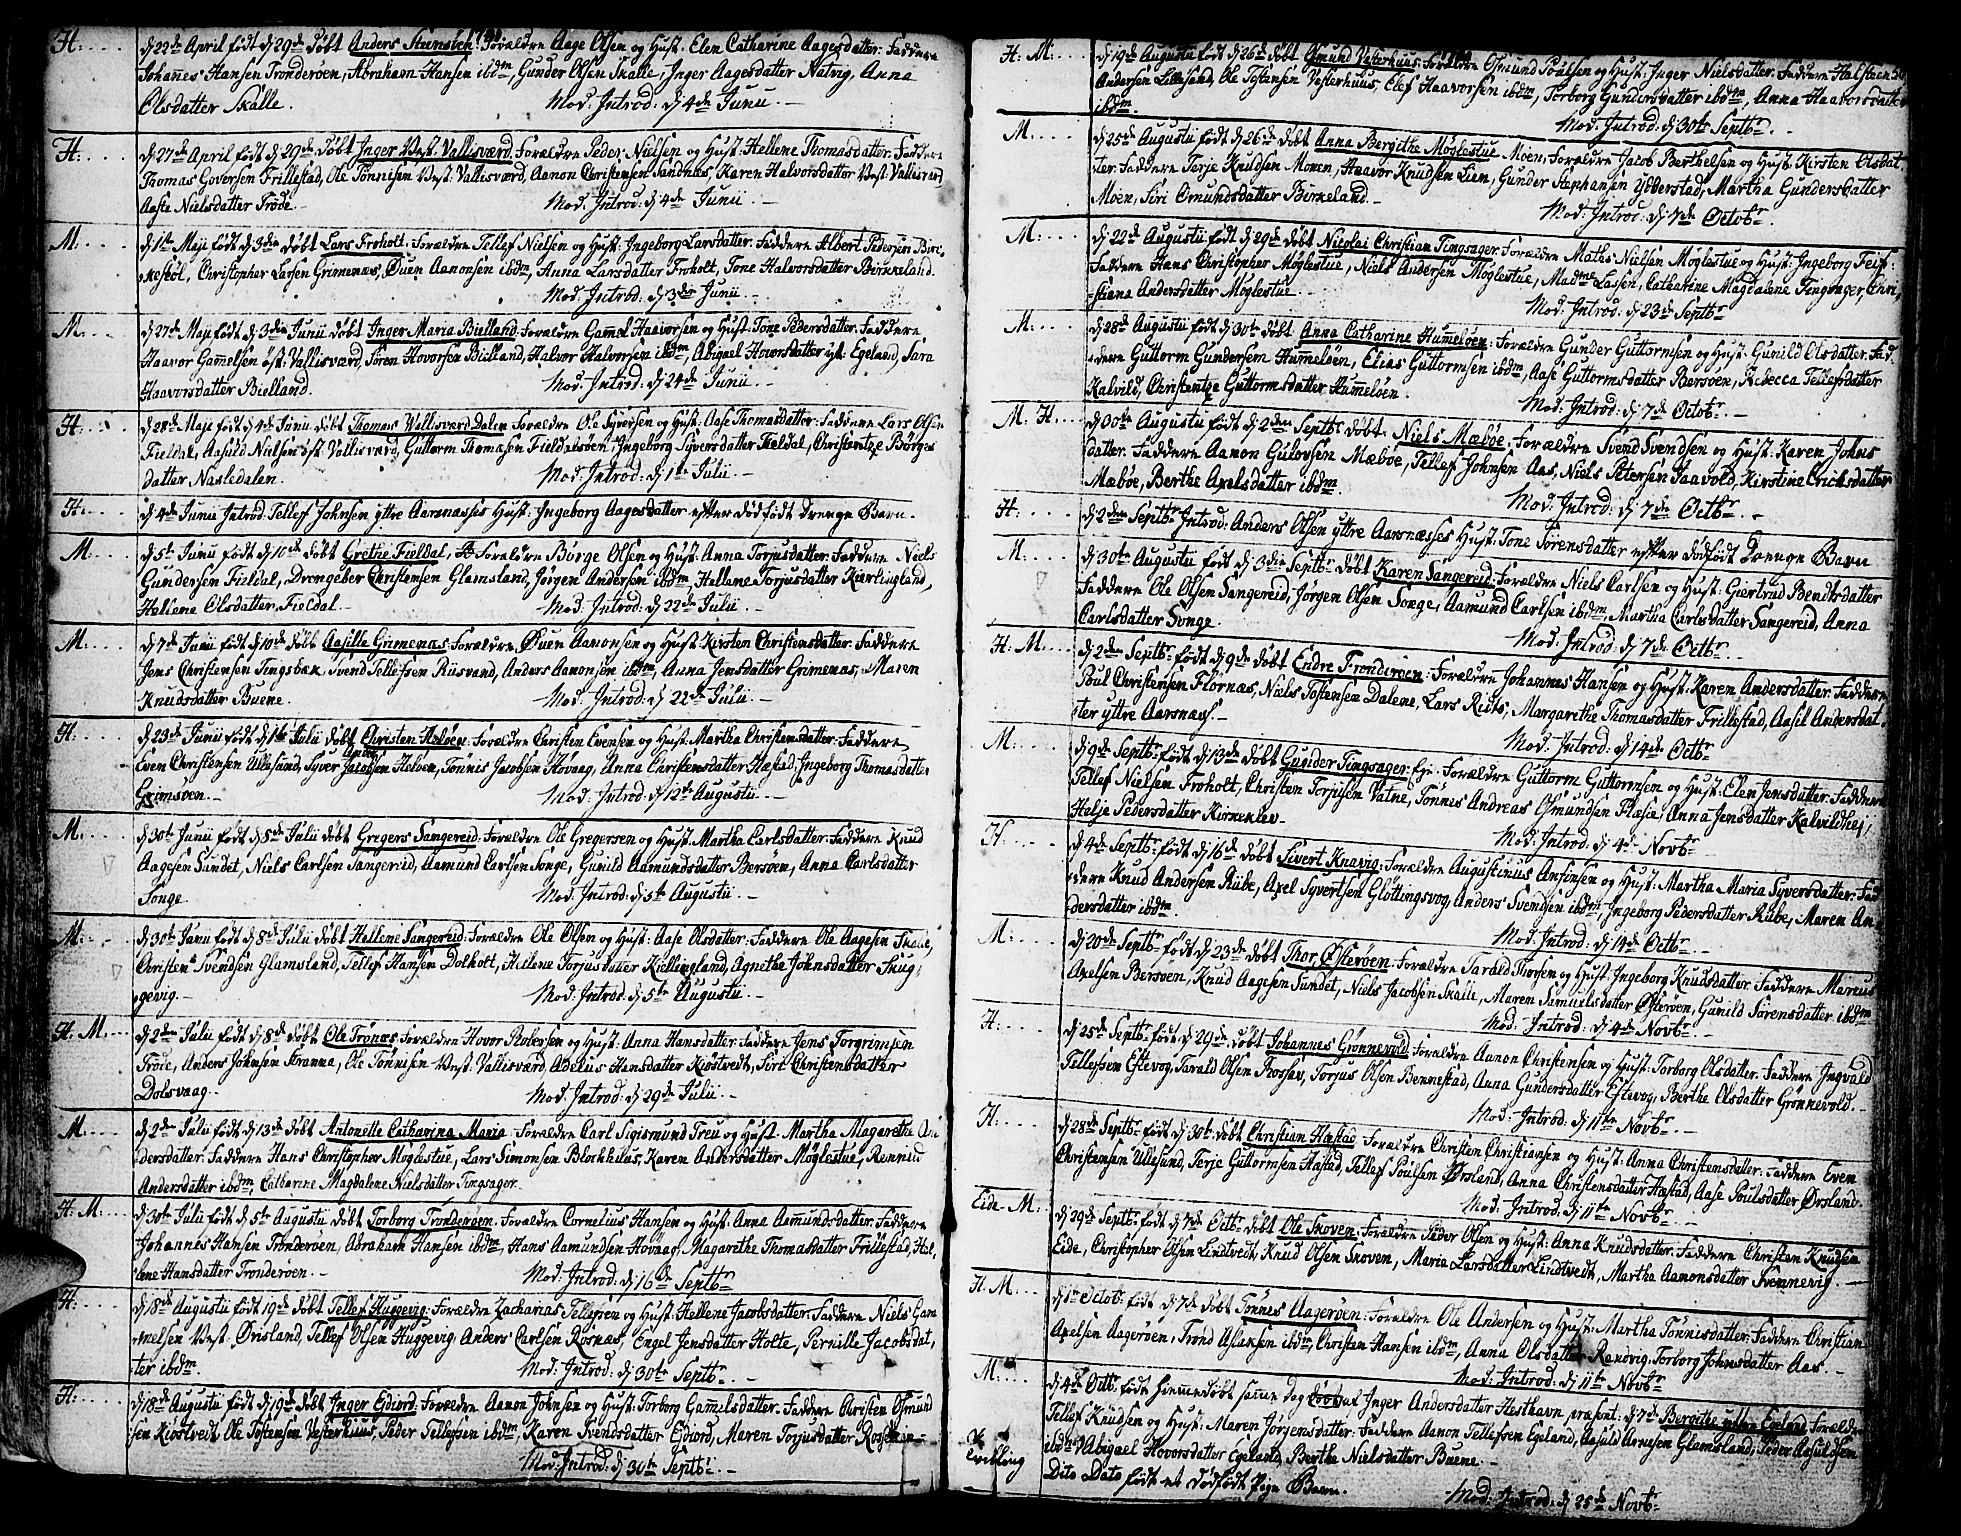 H: d 22de April født d 29de døbt Anders Steensøen. Forældre Aage Olsen og Hust: Elen Catharine Aagesdatter: Faddere
Johannes Hansen Tronderøen, Abraham Hansen ibdm, Gunder Olsen Skalle, Inger Aagesdatter Natvig, Anna
Olsdatter Skalle. Mod: Introd: d 4de Junii.
H: d 27de April født d 29de døbt Inger Vest: Vallisværd. Forældre Peder Nielsen og Hust: Hellene Thomasdatter: Faddere
Thomas Goversen Frillestad, Ole Tønnisen Vest: Vallisværd, Aanon Christensen Sandnes, Karen Halvorsdatter Vest: Vallisværd
Aaste Nielsdatter Trøde. Mod: Introd: d 4de Junii.
M: d 1ste Maji født d 3die døbt Lars Froholt: Forældre Tellef Nielsen og Hust: Ingeborg Larsdatter: Faddere Albert Pedersen Bir-
kestøl, Christopher Larsen Grimenæs, Øuen Aanonsen ibdm, Anna Larsdatter Froholt, Tone Halvorsdatter Birkeland.
Mod: Introd: d 3die Junii.
M: d 27de Maji født d 3die Junii døbt Inger Maria Bielland: Forældre Gamel Haavorsen og Hust: Tone Pedersdatter: Faddere
Haavor Gamelsen øst: Vallisværd, Søren Hovorsen Bielland, Halvor Halvorsen ibdm, Abigael Hovorsdatter yt: Egeland, Sara
Haavorsdatter Bielland. Mod: Introd: d 24de Junii.
H: d 28de Maji født d 4de Junii døbt Thomas Vallisværd Dalen Forældre Ole Syversen og Hust: Aase Thomasdatter: Faddere Lars Olsen
Fieldal, Aasuld Nielsen øst: Vallisværd, Guttorm Thomasen Fieldalsøen, Ingeborg Syversdatter Fieldal, Christentze Børges
datter Nasledalen. Mod: Introd: d 1ste Julii
H: d 4de Junii Introd: Tellef Johnsen yttre Aarsnæsses Hust: Ingeborg Aagesdatter efter dødfødt Drenge Barn.
M: d 5te Junii født d 10de døbt Grethe Fieldal, Forældre Børge Olsen og Hust: Anna Torjusdatter: Faddere Niels
Gundersen Fieldal, Drengeber Christensen Glamsland, Jørgen Andersen ibdm Hellene Torjusdatter Kierlingland,
Hellene Olsdatter Fieldal. Mod: Introd: d 22de Julii.
M: d 7de Junii født d 10de døbt Aasille Grimenæs: Forældre Øuen Aanonsen og Hust: Kirsten Christensdatter: Faddere
Jens Christensen Tingsbæk, Svend Tellefsen Riisvand, Anders Aanonsen ibdm, Anna Jensdatter Grimenæs, Maren
Knudsdatter Buene. Mod: Introd: d 22de Julii.
H: d 23de Junii født d 1ste Julii døbt Christen Haløen: Forældre Christen Evensen og Hust: Martha Christensdatter: Faddere
Even Christensen Ullesund, Syver Jacobsen Haløen, Tønnis Jacobsen Hovaag, Anna Christensdatter Hæstad, Ingeborg Thomasdatter
Grimsven. Mod: Introd: d 12te Augustii.
M: d 30te Junii født d 5te Julii døbt Gregers Sangereid: Forældre Ole Gregersen og Hust: Martha Carlsdatter: Faddere Knud
Aagesen Sundet, Niels Carlsen Sangereid, Aamund Carlsen Songe, Gunild Aamundsdatter Bersøen, Anna Carlsdatter
Songe. Mod: Introd: d 5te Augustii.
M: d 30te Junii født d 8de Julii døbt Hellene Sangereid: Forældre Ole Olsen og Hust: Aase Olsdatter: Faddere Ole Aagesen Skalle,
Christen Svendsen Glamsland, Tellef Hansen Dolholt, Hellene Torjusdatter Kiellingland, Agnethe Johnsdatter Skug-
gevig. Mod: Introd: d 5te Augustii.
H: M: d 2den Julii født d 8de døbt Ole Trønes: Forældre Hovor Robersen og Hust: Anna Hansdatter: Faddere Jens Torgrimsen
Trøde, Anders Johnsen Stranna, Ole Tønnisen Vest: Vallisværd, Adelus Hansdatter Kiøstvedt, Siri Christensdatter
Dolsvaag. Mod: Introd: d 29de Julii
M: d 2den Julii født d 13de døbt Antonette Catharina Maria: Forældre Carl Sigismund Treu og Hust: Martha Magarethe An-
dersdatter: Faddere Hans Christopher Møglestue, Lars Simonsen Blockhuus, Karen Andersdatter Møglestue,
Andersdatter ibdm, Catharine Magdalene Nielsdatter Tingsager.
H: M: d 30te Julii født d 5te Augustii døbt Torborg Tronderøen: Forældre Cornelius Hansen og Hust: Anna Aamundsdatter: Faddere
Johannes Hansen Tronderøen, Abraham Hansen ibdm, Hans Aamundsen Hovaag, Magarethe Thomasdatter Frillestad, Hel-
lene Hansdatter Tronderøen. Mod: Introd: d 16de Septbr
H: d 18de Augustii født 19de døbt Tellef Huggevig: Forældre Zacharias Tellefsen og Hust: Hellene Jacobsdatter: Faddere Niels Gam
melsen Vest: Ørisland, Tellef Olsen Huggevig, Anders Carlsen Rosnæs, Engel Jensdatter Holte, Pernille Jacobsdat-
ter ibdm. Mod: Introd: d 30te Septbr.
H: d 18de Augustii født d 19de døbt Inger Ediord: Forældre Aanon Johnsen og Hust: Torborg Gammelsdatter: Faddere Christen Osmund
sen Kiøstvedt, Ole Tostensen Vesterhuus, Peder Tellefsen ibdm, Karen Svendsdatter Ediord, Maren Torjusdatter
Mod: Introd: d 30te Septbr.
H. M: d 19de Augustii født d 26de døbt Osmund Vesterhuus: Forældre Osmund Poulsen og Hust: Inger Nielsdatter: Faddere Halsteen
Andersen Lillesand, Ole Tostensen Vesterhuus, Elef Haavorsen ibdm, Torborg Gundersdatter ibdm, Anna Haavorsdatter
ibdm. Mod: Introd: d 30te Septbr.
M: d 25de Augustii født d 26de døbt Anna Bergithe Møglestue Moen: Forældre Jacob Berthelsen og Hust: Kirsten Olsdat-
ter: Faddere Terje Knudsen Moen, Haavor Knudsen Lien, Gunder Stephansen Ybberstad, Martha Gundersdatter
Moen, Siri Omundsdatter Birkeland. Mod: Introd: d 7de Octobr
M: d 22de Augustii født d 29de døbt Nicolai Christian Tingsager: Forældre Maths Nielsen Møglestue og Hust: Ingeborg
Faddere Hans Christopher Møglestue, Niels Andersen Møglestue, Madme Lassen, Catharine Magdalene Tingsager, Chri-
stiana Andersdatter Møglestue. Mod: Introd: d 23de Septbr
M: d 28de Augustii født d 30te døbt Anna Catharine Hummeløen: Forældre Gunder Guttormsen og Hust: Gunild Olsdatter: Fad-
dere Guttorm Gundersen Hummeløen, Elias Guttormsen ibdm, Aase Guttormsdatter Bersøen, Rebecca Tellefsdatter
Kalvild, Christentze Guttormsdatter Humeløen. Mod: Introd: d 7de Octobr.
M: H: d 30te Augustii født d 2den Septbr døbt Niels Mæbøe: Forældre Svend Svendsen og Hust: Karen Johns
datter: Faddere Aanon Gulovsen Mæbøe, Tellef Johnsen Aas, Niels Petersen Saavold, Kirstine Erichsdatter
Mæbøe, Berthe Axelsdatter ibdm. Mod: Introd: d 7de Octbr.
H: d 2den Septbr Introd: Anders Olsen yttre Aarsnæsses Hust: Tone Sørensdatter efter dødfødt Drenge Barn
M: d 30te Augustii født d 3die Septbr døbt Karen Sangereid: Forældre Niels Carlsen og Hust: Giertrud Bendtsdatter
Faddere Ole Olsen Sangereid, Jørgen Olsen Songe, Aamund Carlsen ibdm, Martha Carlsdatter Sangereid, Anna
Carlsdatter Songe. Mod: Introd: d 7de Octbr.
H: M: d 2den Septbr født d 9de døbt Endre Tronderøen: Forældre Johannes Hansen og Hust: Karen Andersdatter: Faddere
Poul Christensen Flørnæs, Niels Tostensen Dalene, Lars Riits, Margarethe Thomasdatter Frillestad, Aasel Andersdat-
ter yttre Aarsnæs. Mod: Introd: d 14de Octbr
M: d 9de Septbr født d 13de døbt Gunider Tingsager Eje. Forældre Guttorm Guttormsen og Hust: Elen Jensdatter: Faddere
Tellef Nielsen Froholt, Christen Torjusen Vatne, Tønnes Andreas Osmundsen Flæsie, Anna Jensdatter Kalvildhei,
Helje Pedersdatter Kirneklev. Mod: Introd: d 4de Novbr
H: d 4de Septbr født d 16de døbt Sivert Knavig: Forældre Augustinius Ansonsen og Hust: Martha Maria Syversdatter: Fad-
dere Knud Andersen Rübe, Axel Syvertsen Gløttingsvog, Anders Svendsen ibdm, Ingeborg Pedersdatter Rübe, Maren An-
dersdatter ibdm. Mod: Introd: d 14de Octbr
M: d 20de Septbr født d 23de døbt Thor Østerøen: Forældre Tarald Thorsen og Hust: Ingeborg Knudsdatter: Faddere Marcus
Axelsen Bersøen, Knud Aagesen Sundet, Niels Jacobsen Skalle, Maren Samuelsdatter Østerøen, Gunild Sørensdatter ibdm
Mod: Introd: d 4de Novbr
H: d 25de Septbr født d 29de døbt Johannes Grønnevold: Forældre Aanon Christensen og Hust: Torborg Olsdatter: Faddere Ingvald
Tellefsen Eftevog, Tarald Olsen Rossøv, Torjus Olsen Bennestad, Anna Gundersdatter Eftevog, Berthe Olsdatter Grønnevold.
Mod: Introd: d 11te Novbr.
H: d 28de Septbr født d 30te døbt Christian Hæstad: Forældre Christen Christiansen og Hust: Anna Christensdatter: Faddere Even
Christensen Ullesund, Terje Guttormsen Hæstad, Tellef Poulsen Ørsland, Anna Christensdatter Hæstad, Aase Poulsdatter Ørsland.
Mod: Introd: d 11te Novbr.
Eide M: d 29de Septbr født d 7de Octbr døbt Ole Skoven: Forældre Peder Olsen og Hust: Anna Knudsdatter: Faddere Christen Knudsen
Eide, Christopher Olsen Lindtvedt, Knud Olsen Skoven, Maria Larsdatter Lindtvedt, Martha Aamonsdatter Svennevig.
H. M: d 1ste Octobr født d 7de døbt Tønnes Aagerøen: Forældre Ole Andersen og Hust: Martha Tønnisdatter: Faddere Christian
Axelsen Aagerøen, Trond Aslaksen ibdm, Christen Hansen ibdm, Anna Olsdatter Randvig, Torborg Johnsdatter Aas
Mod: Introd: d 11te Novbr
M: d 4de Octbr født hiemmedøbt samme dag af Inger Andersdatter Hesthavn, præsent: d 7de Bergithe ytter Egeland Forældre
Tellef Knudsen og Hust: Maren Jørgensdatter: Faddere Aanon Tellefsen Egeland, Aasuld Arnesen Glamsland, Peder Aasuldsen
ibdm, Abigael Hovorsdatter Egeland, Berthe Nielsdatter Buene.
Tvilling Dito Dato født et dødfødt Pige Barn. Mod: Introd: d 25de Novbr